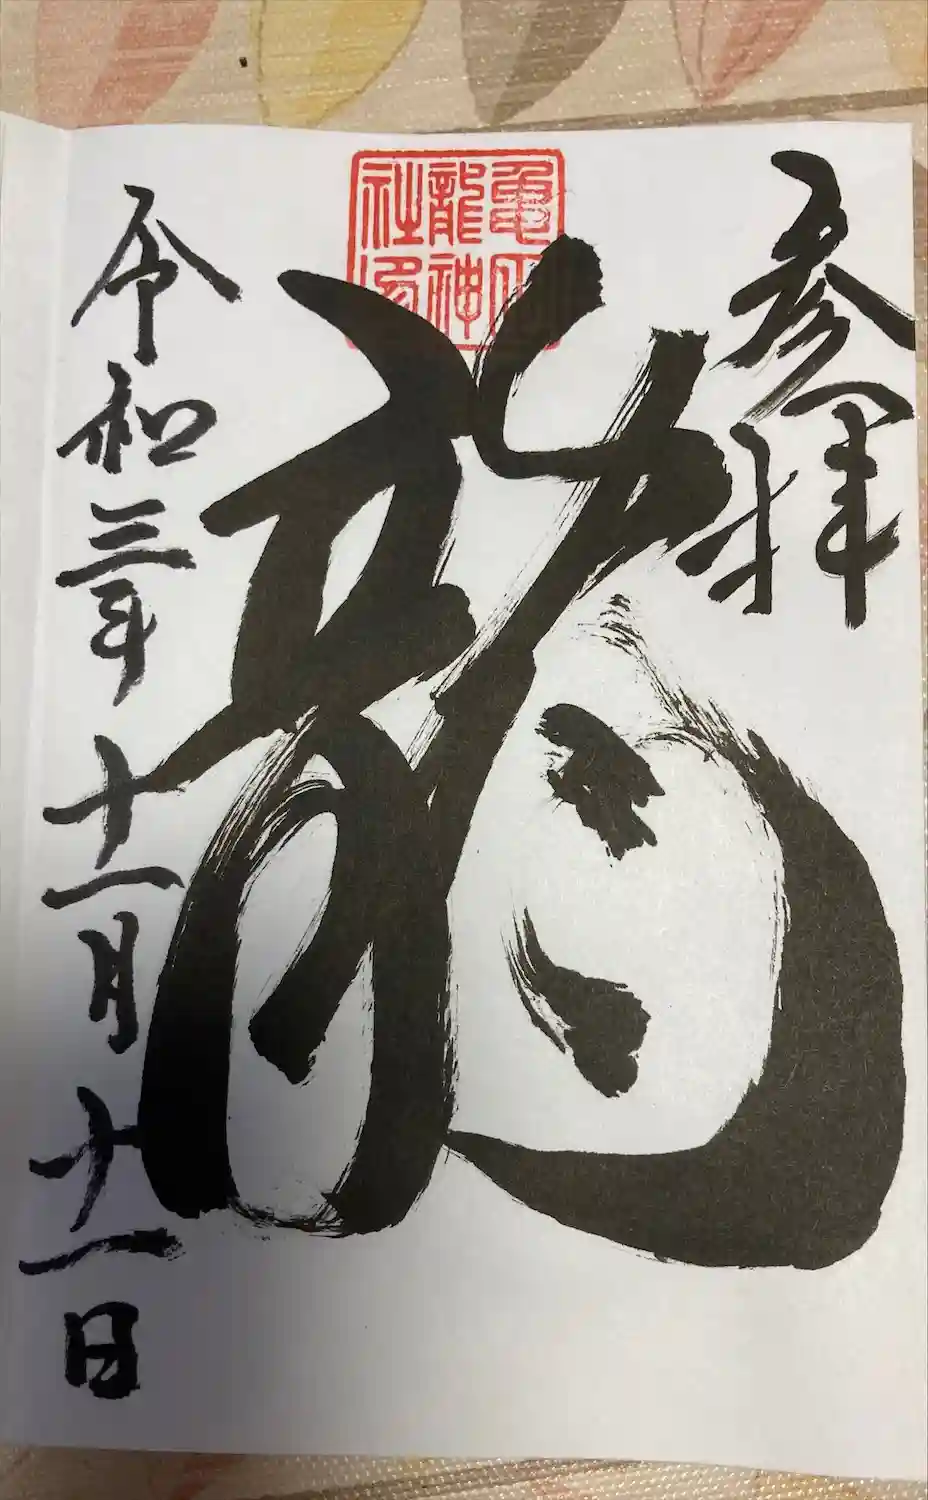 参拝
亀
龍神
社印
龍
令和三年十一月十一日